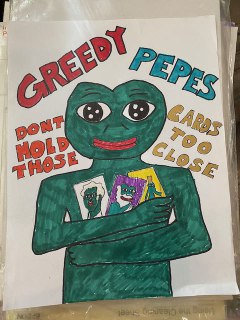 GREEDY
PEPES
DONT
HOLD
THOSE
CARDS
TOO
CLOSE